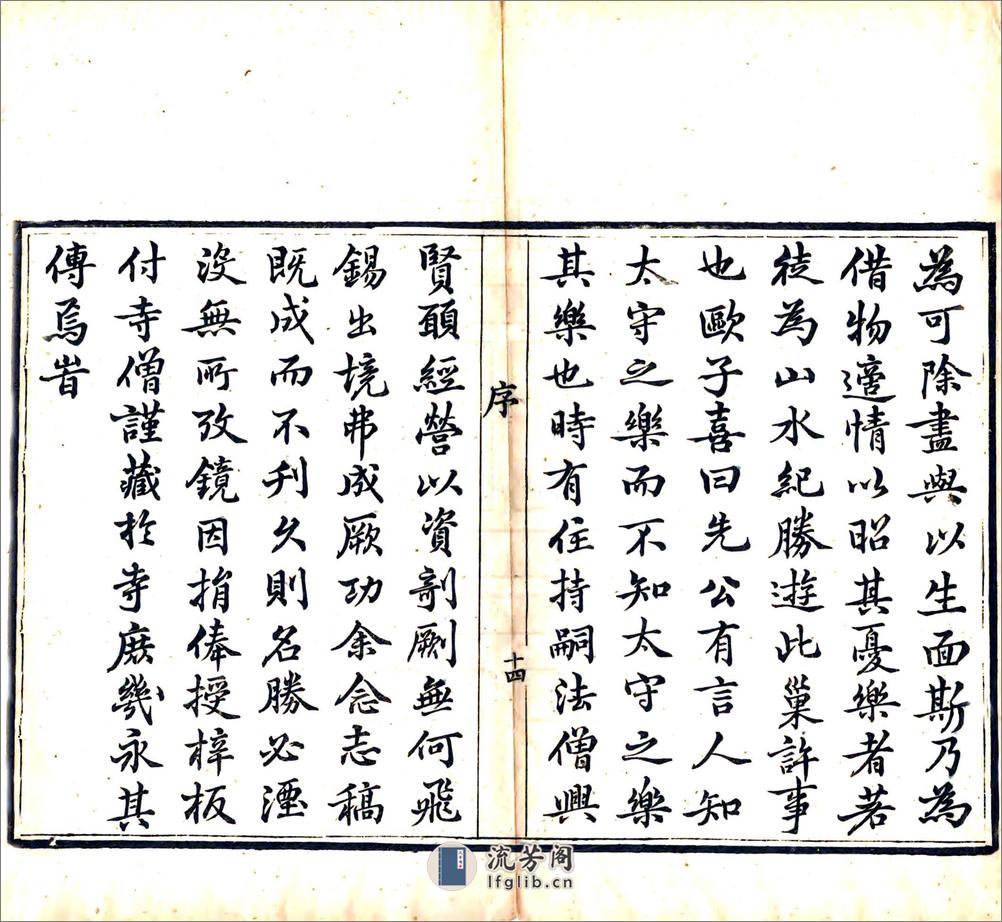 為可除盡與以生面斯乃為
借物適情以昭其憂樂者若
徒為山水紀勝遊此巢許事
也歐子喜曰先公有言人知
太守之樂而不知太守之樂
其樂也時有住持嗣法僧興
序
十四
賢願經營以資剞劂無何飛
錫出境弗成厥功余念志稿
既成而不刋久則名勝必湮
沒無所攷鏡因捐俸授梓板
付寺僧謹藏於寺庶幾永其
傳焉旹
流芳阁
lfglib.cn